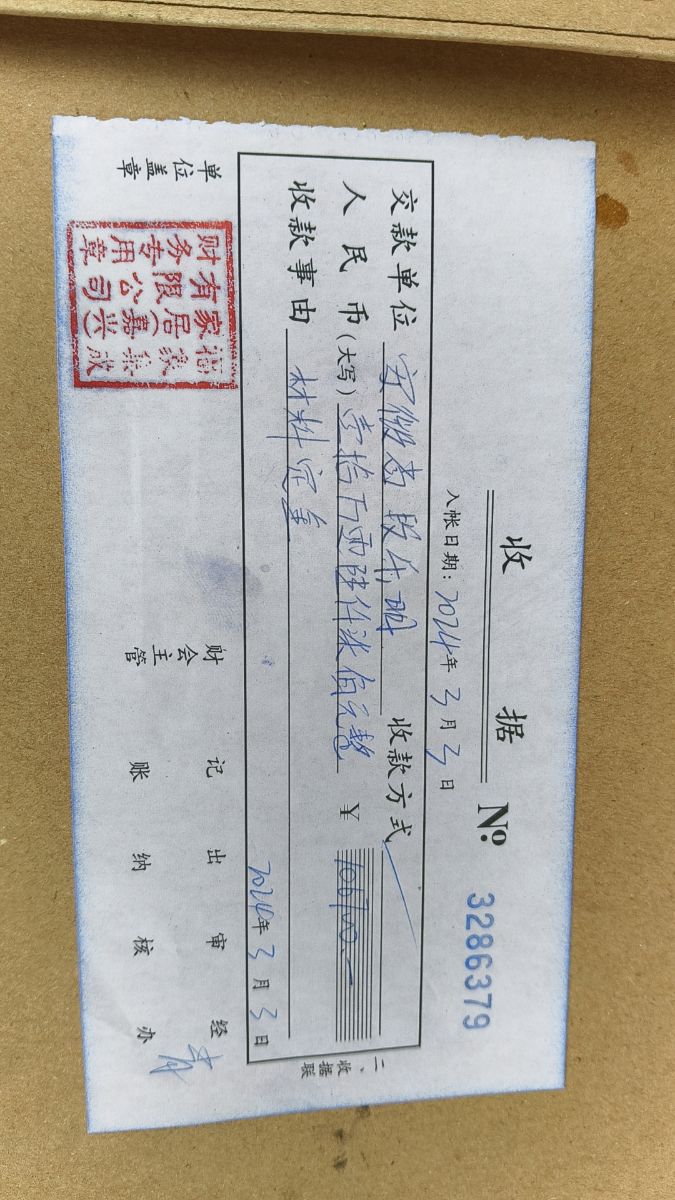 收据 № 3286379
入帐日期：2024年3月3日
交款单位 收款方式
人民币（大写）壹拾万零陆仟柒佰元整 ￥ 106700.-
收款事由 材料定金
2024年3月3日
二、收据联
单位盖章 财会主管 记账 出纳 审核 经办
家有财
居限务
公专
嘉司用
兴章